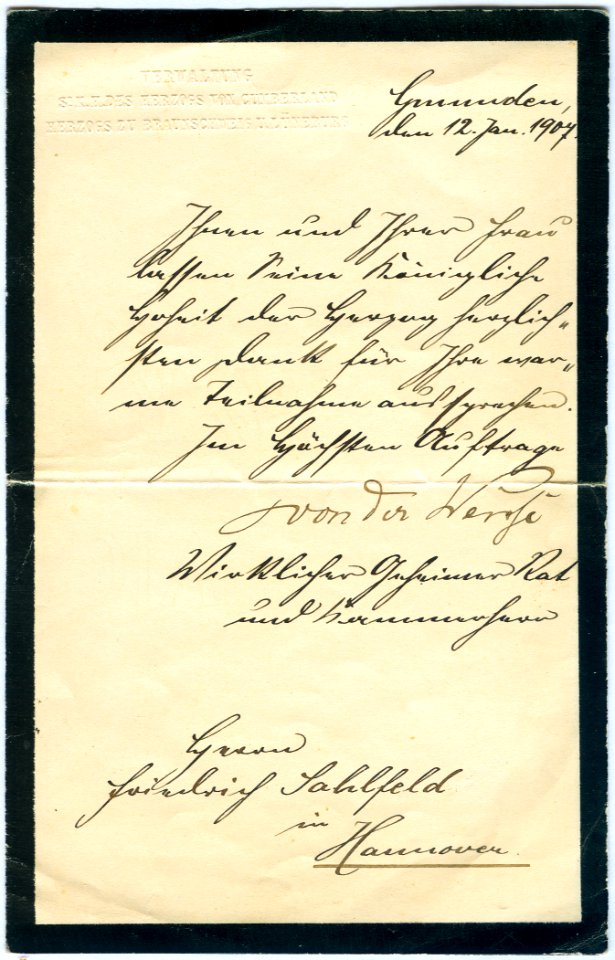 VERWALTUNG
S.K.H. DES HERZOGS VON CUMBERLAND
HERZOGS ZU BRAUNSCHWEIG U. LÜNEBURG
Gmunden,
den 12. Jan. 1907.
Ihnen und Ihrer Frau
lassen Seine Königliche
Hoheit der Herzog herzlich„
sten Dank für Ihre war„
me Teilnahme aussprechen.
Im Höchsten Auftrage
von der Wense
Wirklicher Geheimer Rat
und Kammerherr
Herrn
Friedrich Sahlfeld
in
Hannover.